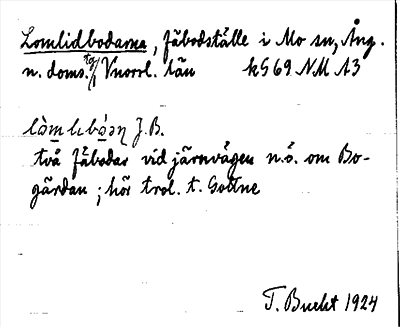 Lomlidbodarna, Fäbodställe i Mo sn, Ång.
n. doms.tg/ Vnorrl. län kG 69 NM A3
làmlıbóəṇ J.B.
två Fäbodar vid järnvägen n.ö. om Bo-
gärdan; hör trol. t. Gottne
T. Bucht 1924